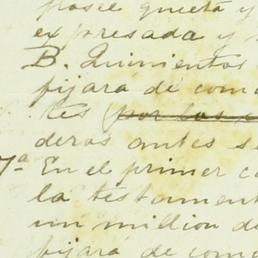 posee quieta y
expresada y
B. Quinientos
fijara de com
tes por los c
deros antes se
7ª En el primer c
la testament
un million de
fijará de como